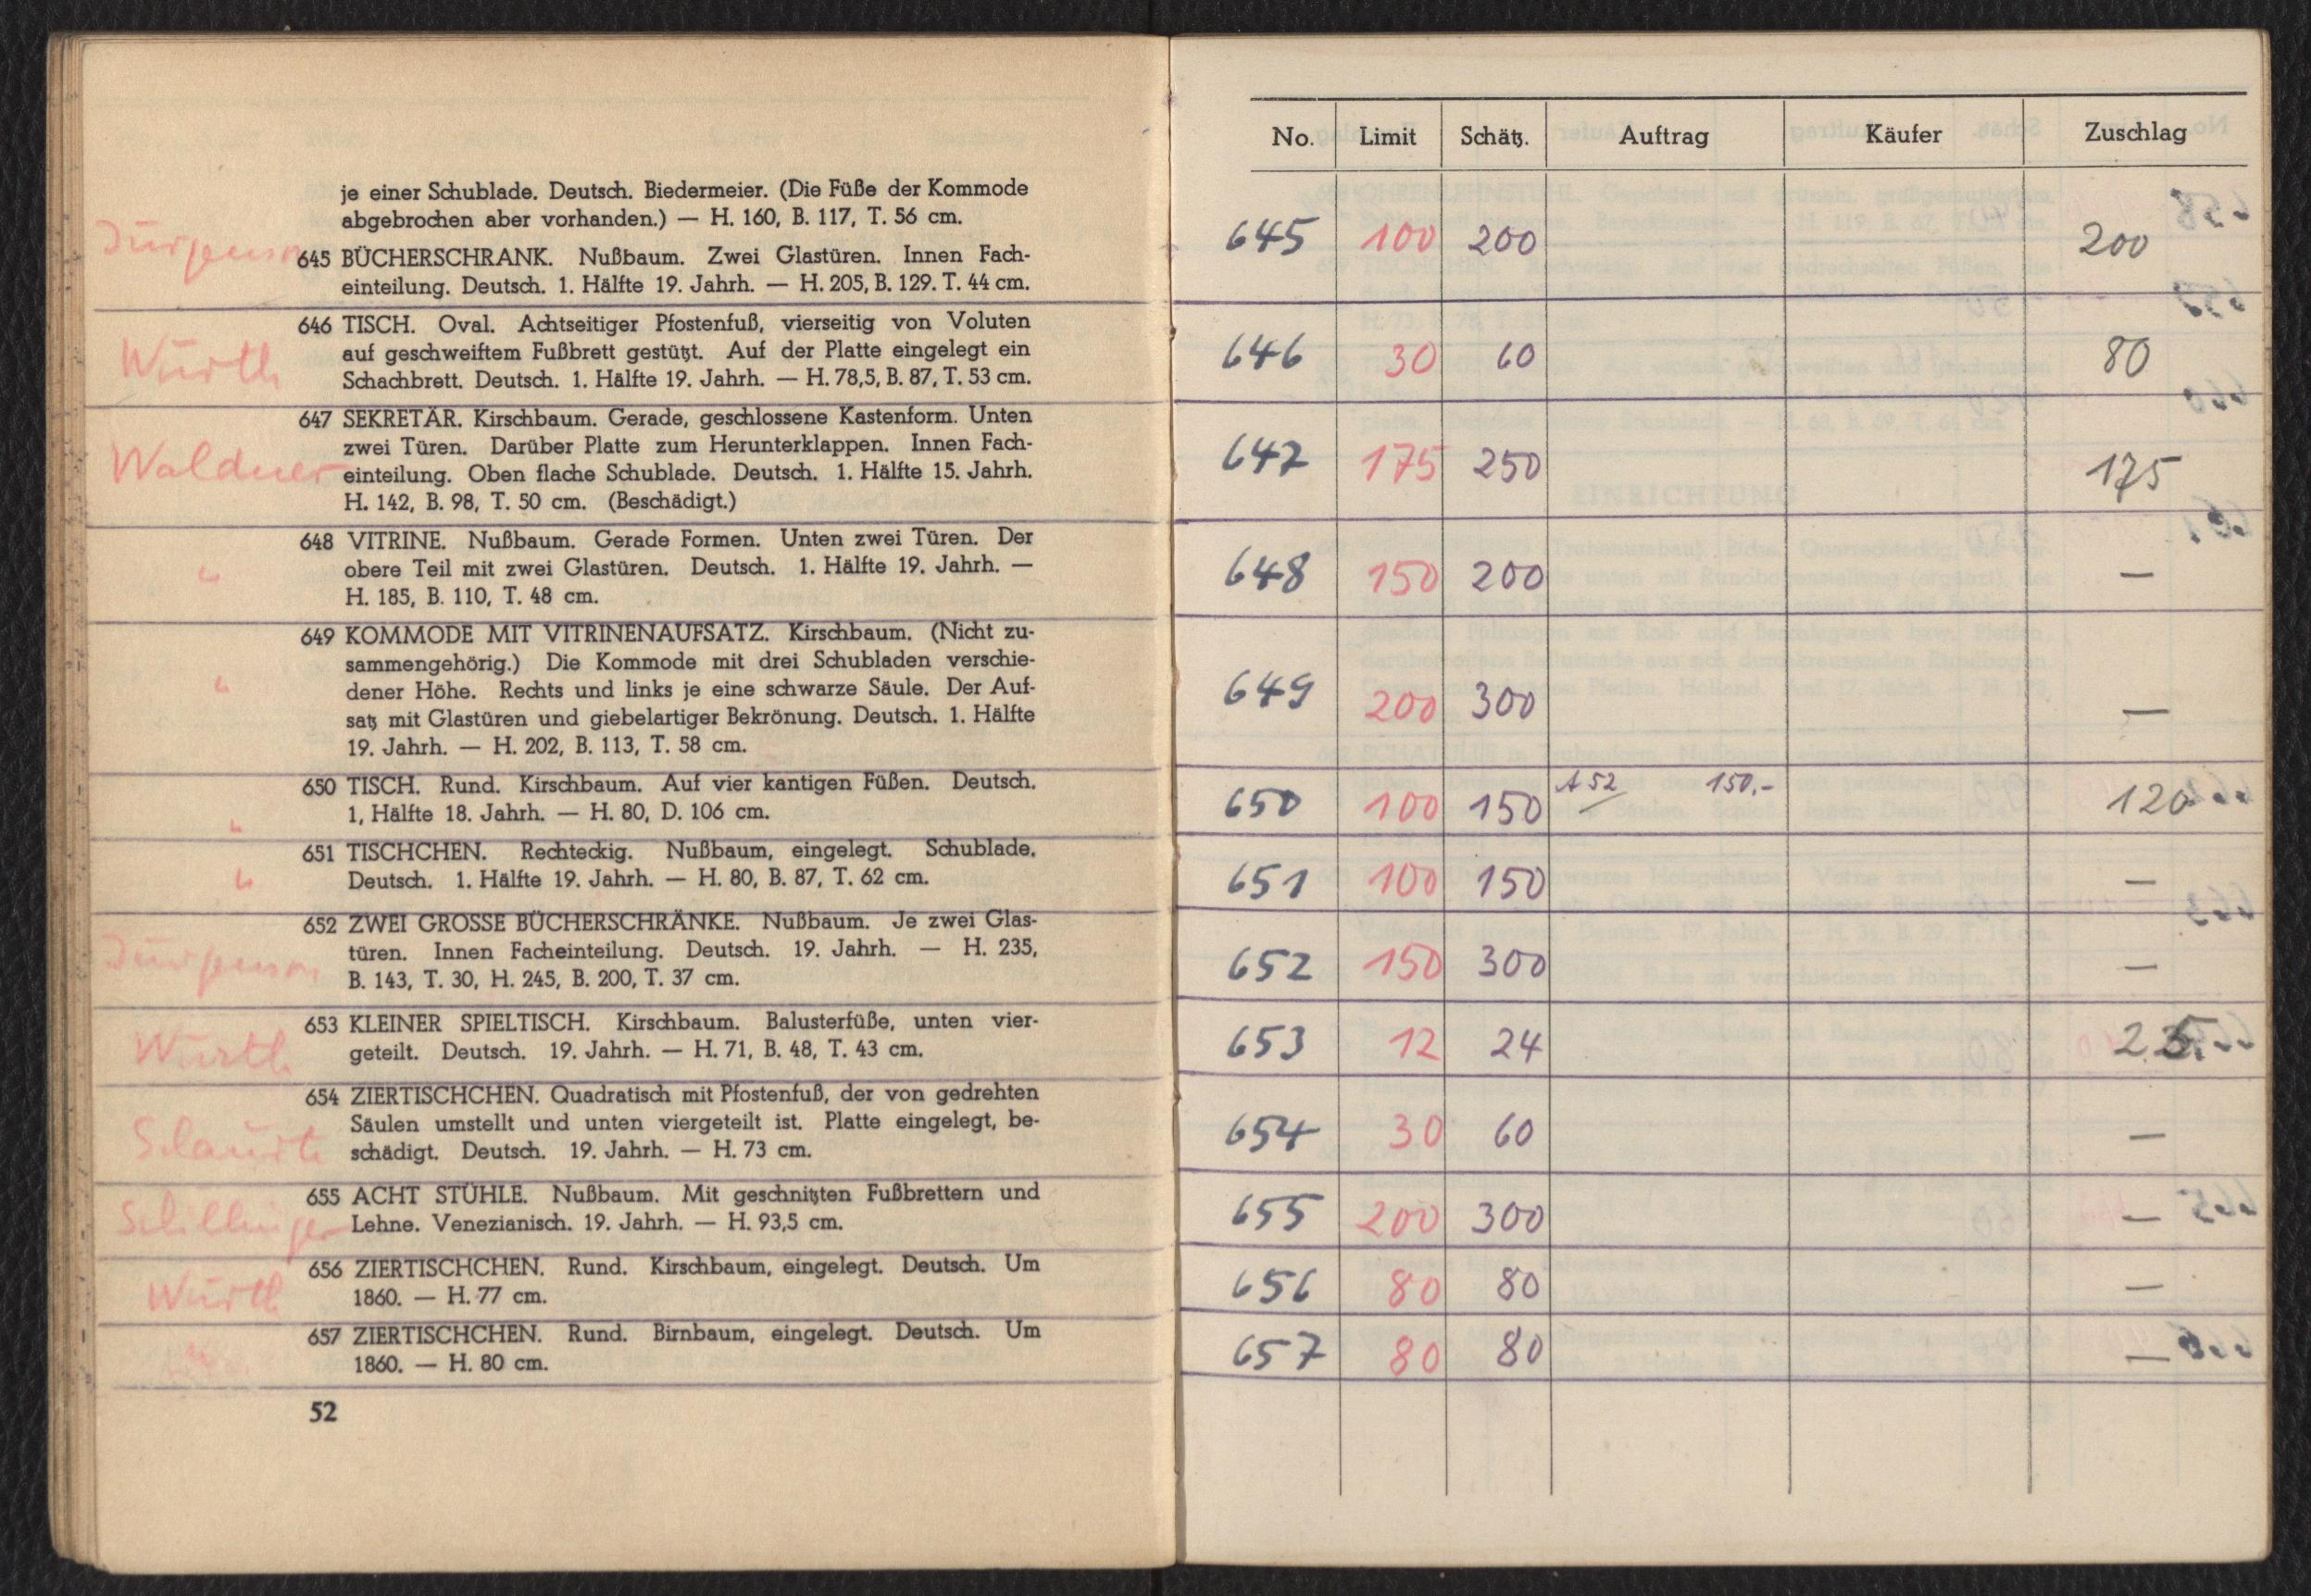 je einer Schublade. Deutsch. Biedermeier. (Die Füße der Kommode
abgebrochen aber vorhanden.) — H. 160, B. 117, T. 56 cm.
645 BÜCHERSCHRANK. Nußbaum. Zwei Glastüren. Innen Fach-
einteilung. Deutsch. 1. Hälfte 19. Jahrh. — H. 205, B. 129. T. 44 cm.
Würth
646 TISCH. Oval. Achtseitiger Pfostenfuß, vierseitig von Voluten
auf geschweiftem Fußbrett gestützt. Auf der Platte eingelegt ein
Schachbrett. Deutsch. 1. Hälfte 19. Jahrh. — H. 78,5, B. 87, T. 53 cm.
Waldner
647 SEKRETÄR. Kirschbaum. Gerade, geschlossene Kastenform. Unten
zwei Türen. Darüber Platte zum Herunterklappen. Innen Fach-
einteilung. Oben flache Schublade. Deutsch. 1. Hälfte 15. Jahrh.
H. 142, B. 98, T. 50 cm. (Beschädigt.)
"
648 VITRINE. Nußbaum. Gerade Formen. Unten zwei Türen. Der
obere Teil mit zwei Glastüren. Deutsch. 1. Hälfte 19. Jahrh. —
H. 185, B. 110, T. 48 cm.
"
649 KOMMODE MIT VITRINENAUFSATZ. Kirschbaum. (Nicht zu-
sammengehörig.) Die Kommode mit drei Schubladen verschie-
dener Höhe. Rechts und links je eine schwarze Säule. Der Auf-
satz mit Glastüren und giebelartiger Bekrönung. Deutsch. 1. Hälfte
19. Jahrh. — H. 202, B. 113, T. 58 cm.
"
650 TISCH. Rund. Kirschbaum. Auf vier kantigen Füßen. Deutsch.
1, Hälfte 18. Jahrh. — H. 80, D. 106 cm.
"
651 TISCHCHEN. Rechteckig. Nußbaum, eingelegt. Schublade.
Deutsch. 1. Hälfte 19. Jahrh. — H. 80, B. 87, T. 62 cm.
652 ZWEI GROSSE BÜCHERSCHRÄNKE. Nußbaum. Je zwei Glas-
türen. Innen Facheinteilung. Deutsch. 19. Jahrh. — H. 235,
B. 143, T. 30, H. 245, B. 200, T. 37 cm.
Würth
653 KLEINER SPIELTISCH. Kirschbaum. Balusterfüße, unten vier-
geteilt. Deutsch. 19. Jahrh. — H. 71, B. 48, T. 43 cm.
654 ZIERTISCHCHEN. Quadratisch mit Pfostenfuß, der von gedrehten
Säulen umstellt und unten viergeteilt ist. Platte eingelegt, be-
schädigt. Deutsch. 19. Jahrh. — H. 73 cm.
Schillinger
655 ACHT STÜHLE. Nußbaum. Mit geschnitzten Fußbrettern und
Lehne. Venezianisch. 19. Jahrh. — H. 93,5 cm.
Würth
656 ZIERTISCHCHEN. Rund. Kirschbaum, eingelegt. Deutsch. Um
1860. — H. 77 cm.
657 ZIERTISCHCHEN. Rund. Birnbaum, eingelegt. Deutsch. Um
1860. — H. 80 cm.
52
No. Limit Schätz. Auftrag Käufer Zuschlag
645 100 200 200
646 30 60 80
647 175 250 175
648 150 200 —
649 200 300 —
650 100 150 A 52 150.- 120
651 100 150 —
652 150 300 —
653 12 24 25
654 30 60 —
655 200 300 —
656 80 80 —
657 80 80 —